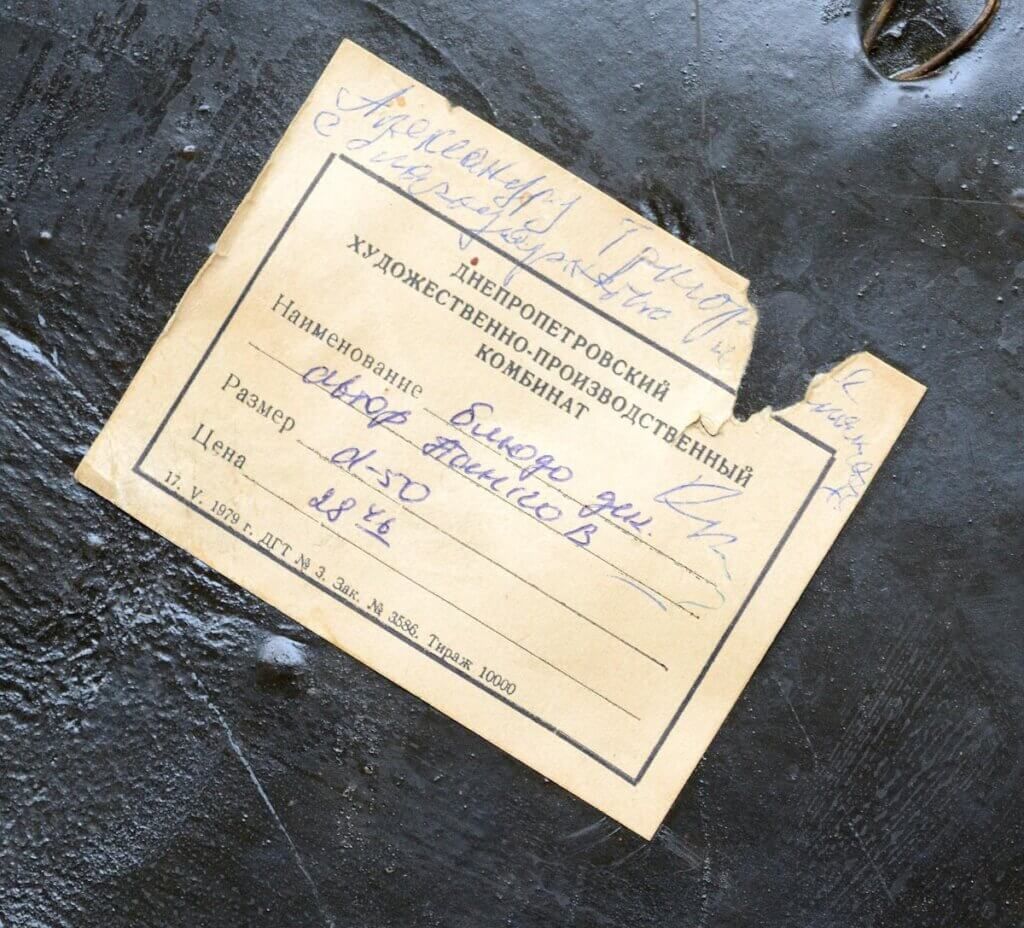 Александру Григор
с
ДНЕПРОПЕТРОВСКИЙ
ХУДОЖЕСТВЕННО-ПРОИЗВОДСТВЕННЫЙ
КОМБИНАТ
Наименование блюдо дек.
автор
Размер d-50
Цена 28
17. V. 1979 г. ДГТ № 3. Зак. № 3586. Тираж 10000